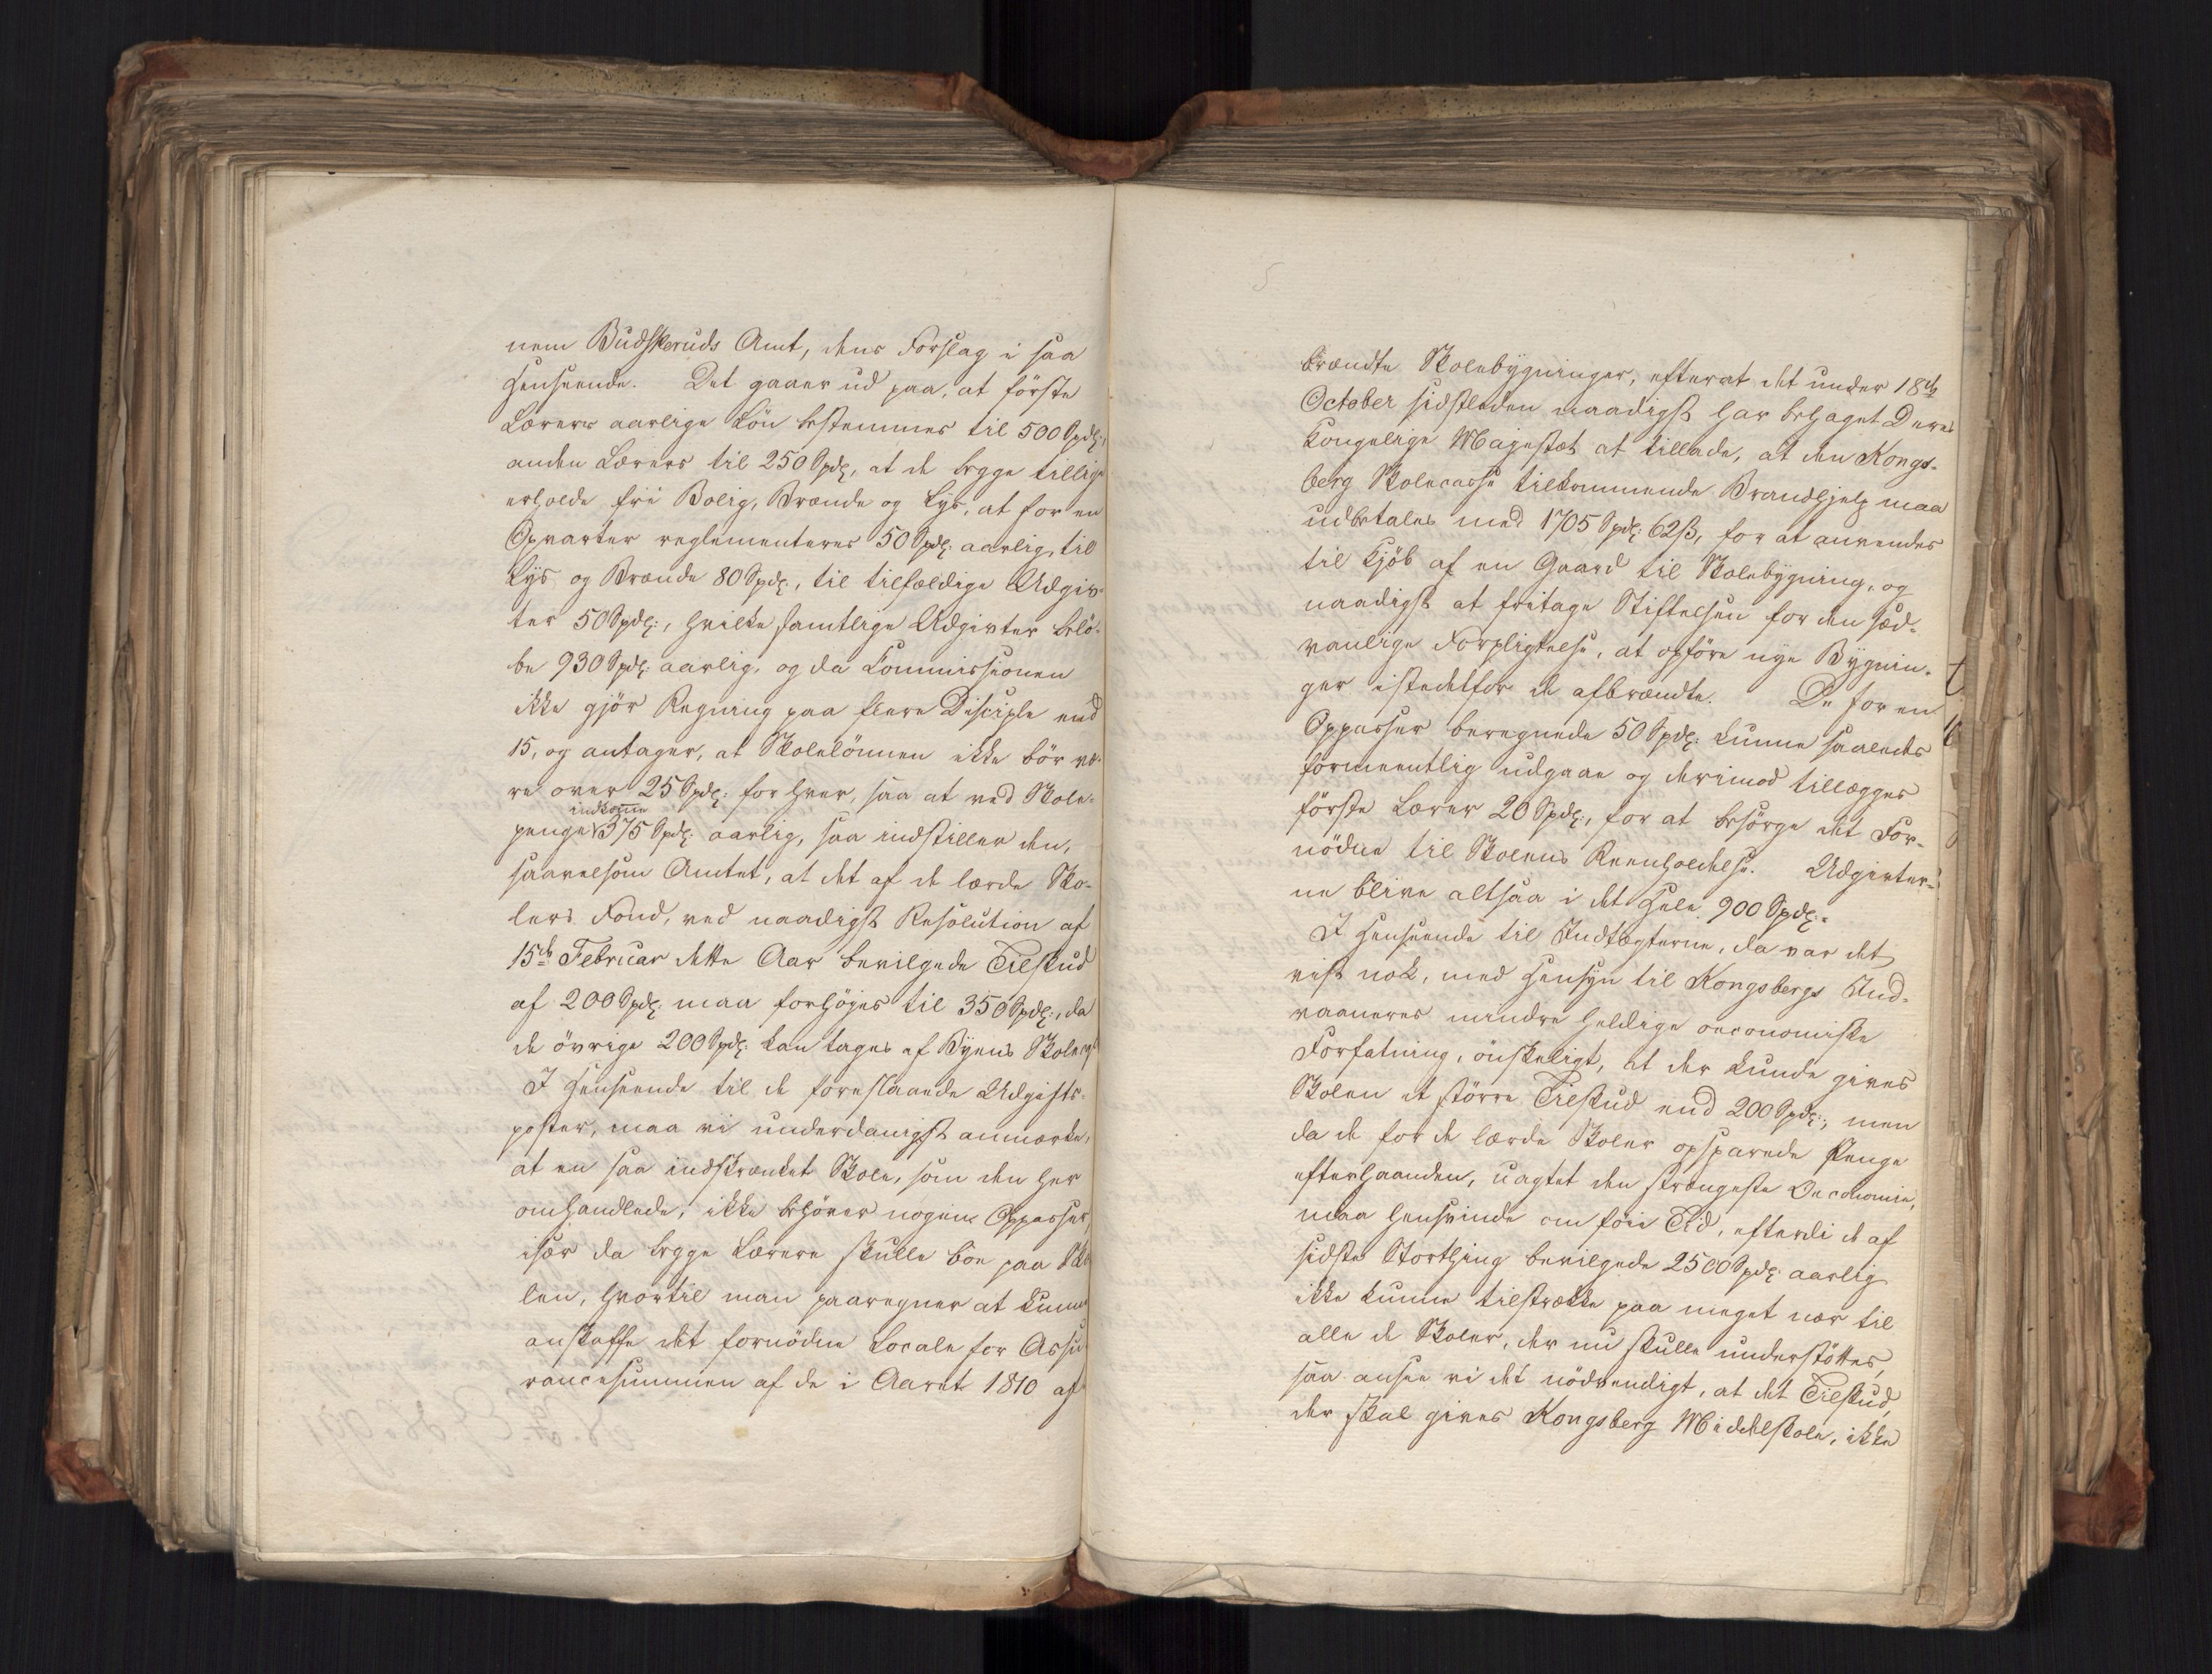 nem Budskeruds Amt, dens Forslag i saa
Henseende. Det gaaer ud paa, at förste
Lærers aarlige Lön bestemmes til 500 Spdlr.,
anden Lærers til 250 Spdlr, at de begge tillige
erholde fri Bolig, Brænde og Lys, at for en
Opvarter reglementeres 50 Spdlr: aarlig, til
Lys og Brænde 80 Spdlr., til tilfældige Udgiv-
ter 50 Spdlr:, hvilke samtlige Udgivter belö-
be 930 Spdlr: aarlig, og da Commissionen
ikke gjör Regning paa flere Disciple end
15, og antager, at Skolelönnen ikke bör væ-
re over 25 Spdlr: for hver, saa at ved Skole-
indkomme
penge 375 Spdlr: aarlig, saa indstiller den,
saavelsom Amtet, at det af de lærde Sko-
lers Fond, ved naadigst Resolution af
15de Februar dette Aar bevilgede Tilskud
af 200 Spdlr: maa forhöjes til 350 Spdlr:, da
de övrige 200 Spdlr: kan tages af Byens
I Henseende til de foreslaaede Udgifts-
poster, maa vi underdanigst anmærke,
at en saa indskrænket Skole, som den her
omhandlede, ikke behöver nogen Oppasser,
især da begge Lærere skulle boe paa Sko-
len, hvortil man paaregner at kunne
anskaffe det fornödne Locale for Assu-
rancesummen af de i Aaret 1810 af-
brændte Skolebygninger, efterat det under 18de
October sidstleden naadigst har behaget Deres
Kongelige Majestæt at tillade, at den Kongs-
berg Skolecasse tilkommende Brandhjelp maa
udbetales med 1705 Spdlr: 62 ß, for at anvendes
til Kjöb af en Gaard til Skolebygning, og
naadigst at fritage Stiftelsen for den sæd-
vanlige Forpligtelse, at opföre nye Bygnin-
ger istedetfor de afbrændte. De for en
Oppasser beregnede 50 Spdlr: kunne saaledes
formeentlig udgaae og derimod tillægges
förste Lærer 20 Spdlr:, for at besörge det For-
nödne til Skolens Reenholdelse. Udgivter-
ne blive altsaa i det Hele 900 Spdlr:
I Henseende til Indtægterne, da var det
vist nok, med Hensyn til Kongsbergs Ind-
vaaneres mindre heldige oeconomiske
Forfatning, önskeligt, at der kunde gives
Skolen et större Tilskud end 200 Spdlr:, men
da de for de lærde Skoler opsparede Penge
efterhaanden, uagtet den strængeste Oeconomie,
maa hensvinde om föie Tid, efterdi de af
sidste Storthing bevilgede 2500 Spdlr: aarlig
ikke kunne tilstrække paa meget nær til
alle de Skoler, der nu skulle understöttes,
saa ansee vi det nödvendigt, at det Tilskud,
der skal gives Kongsberg Middelskole, ikke